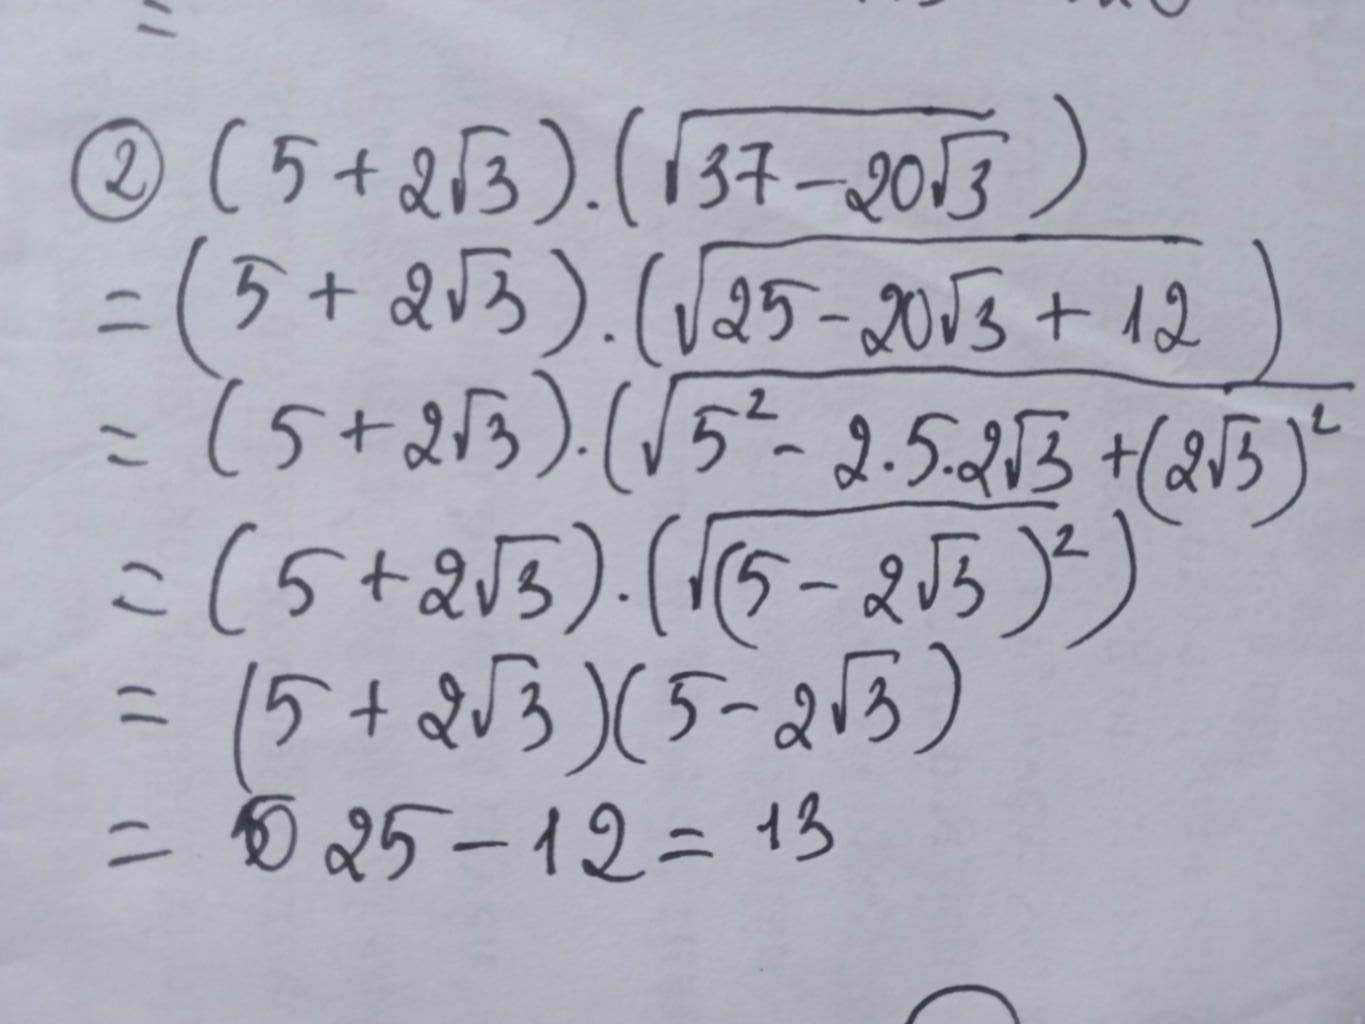 =
② (5 + 2√3) . (√(37 - 20√3))
= (5 + 2√3) . (√(25 - 20√3 + 12))
= (5 + 2√3) . (√(5² - 2.5.2√3 + (2√3)²
= (5 + 2√3) . (√((5 - 2√3)²))
= (5 + 2√3)(5 - 2√3)
= 25 - 12 = 13